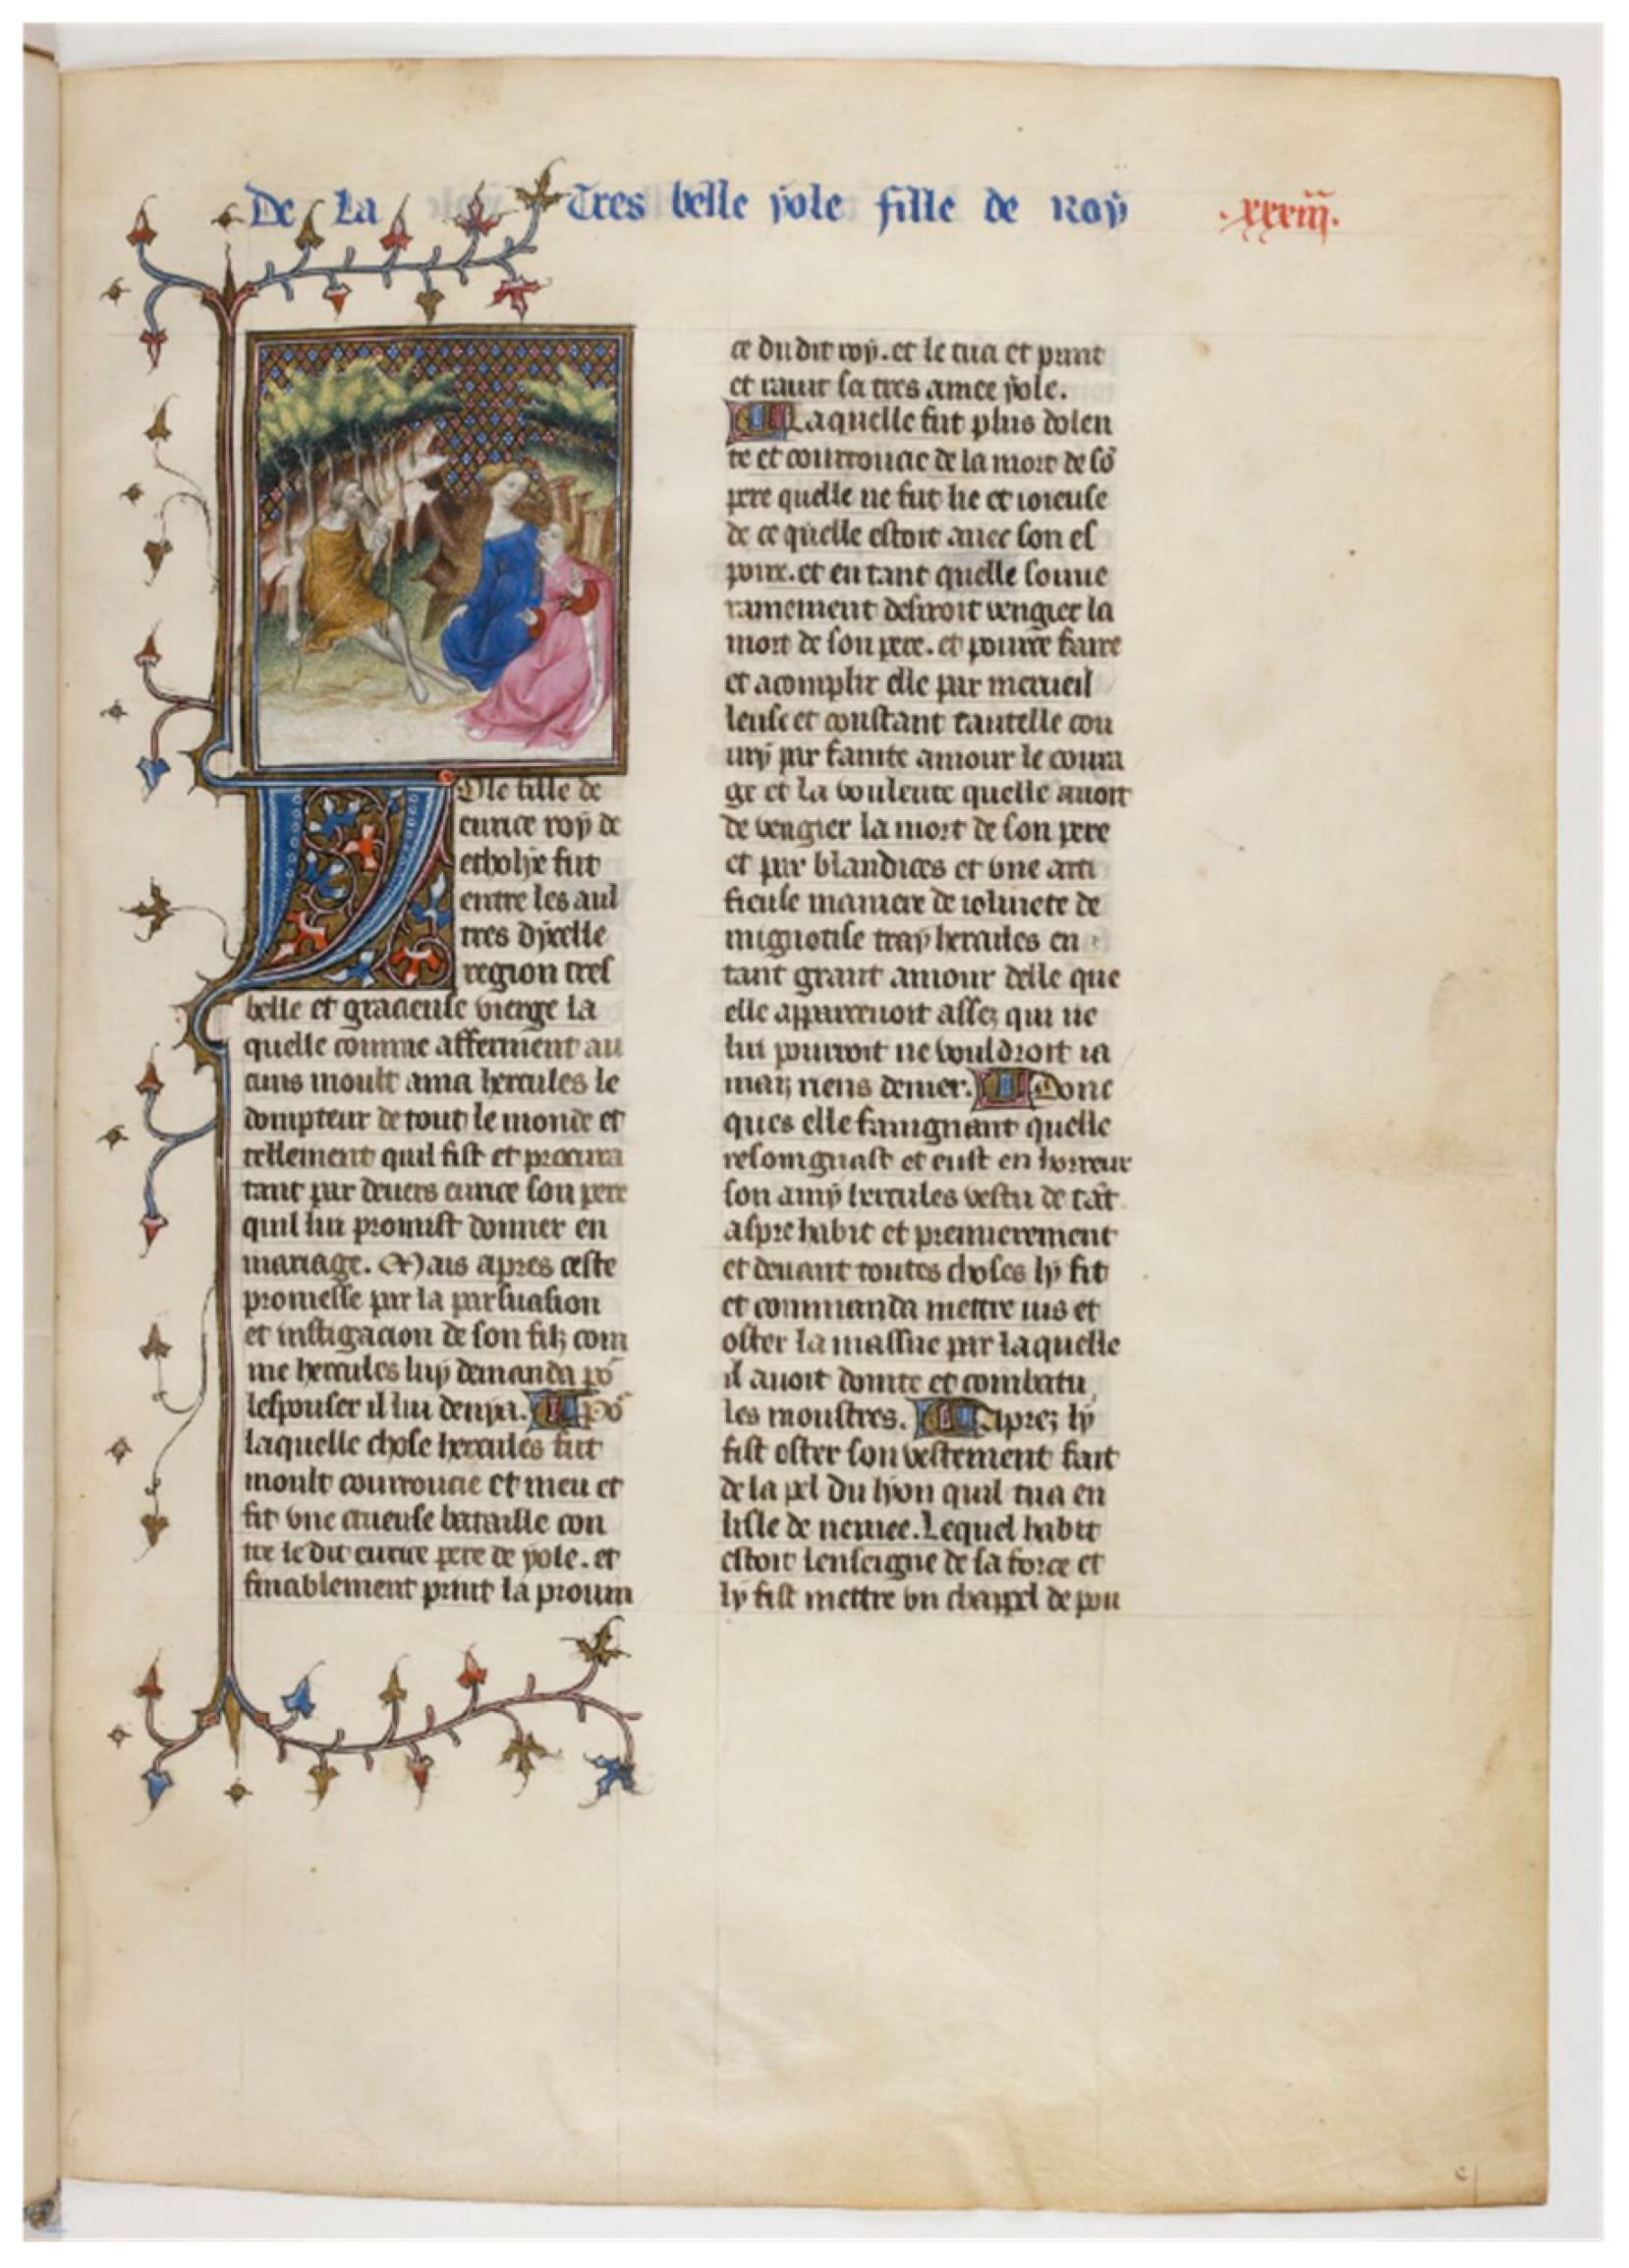 De La Tres belle yole fille de Roy .xxxiii.
Yole fille de
eurice roy de
etholye fut
entre les aul
tres dycelle
region tres
belle et gracieuse vierge la
quelle comme afferment au
cuns moult ama hercules le
dompteur de tout le monde et
tellement quil fist et procura
tant par devers eurice son pere
quil lui promist donner en
mariage. Mais apres ceste
promesse par la parsuasion
et instigacion de son filz com
me hercules luy demanda po᷑
lespouser il lui denya. Po᷑
laquelle chose hercules fut
moult courroucie et meu et
fit vne crueuse bataille con
tre le dit eurice pere de yole. et
finablement print la prouin
ce du dit roy. et le tua et print
et rauit sa tres amee yole.
Laquelle fut plus dolen
te et courroucie de la mort de sō
pere quelle ne fut lie et ioieuse
de ce quelle estoit auec son es
poux. et en tant quelle souue
rainement desiroit vengier la
mort de son pere. et pource faire
et acomplir elle par merueil
leuse et constant cautelle cou
ury par fainte amour le coura
ge et la voulente quelle auoit
de vengier la mort de son pere
et par blandices et vne arti
ficiele maniere de ioliuete de
mignotise tray hercules en
tant grant amour delle que
elle apparceuoit assez qui ne
lui pourroit ne vouldroit ia
maiz riens denier. Donc
ques elle faingnant quelle
resoingnast et eust en horreur
son amy hercules vestu de tāt
aspre habit et premierement
et deuant toutes choses ly fit
et commanda mettre ius et
oster la massue par laquelle
il auoit domte et combatu
les monstres. Aprez ly
fist oster son vestement fait
de la pel du lyon quil tua en
lisle de nemee. Lequel habit
estoit lenseigne de sa force et
ly fist mettre vn chappel de pou